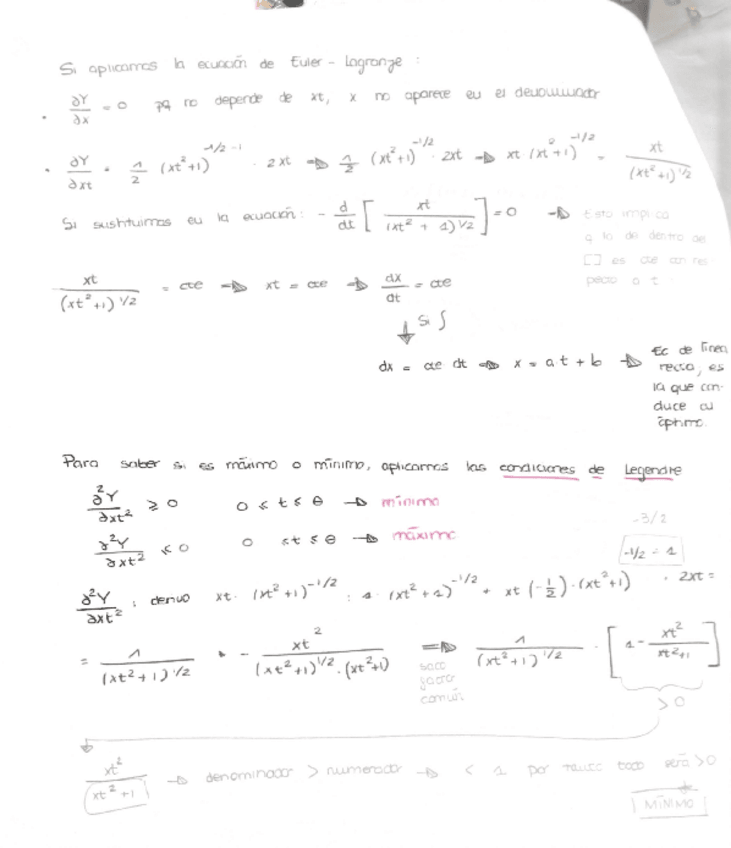 Si aplicamos la ecuación de Euler - Lagrange :
• ∂Y/∂x = 0 pq no depende de xt, x no aparece en el denominador
• ∂Y/∂xt = 1/2 (xt²+1)^(-1/2 -1) · 2xt ⇒ 1/2 (xt²+1)^(-1/2) · 2xt ⇒ xt (xt²+1)^(-1/2) = xt/(xt²+1)^1/2
Si sustituimos en la ecuación: - d/dt [ xt/(xt² + 1)^1/2 ] = 0 → Esto implica
q lo de dentro de
[ ] es cte con res-
pecto a t
xt/(xt²+1)^1/2 = cte ⇒ xt = cte ⇒ dx/dt = cte
↓ Si ∫
dx = cte dt ⇒ x = a·t + b → Ec de línea
recta, es
la que con-
duce al
óptimo.
Para saber si es máximo o mínimo, aplicamos las condiciones de Legendre
∂²Y/∂xt² ≥ 0 0 ≤ t ≤ θ → mínimo
∂²Y/∂xt² ≤ 0 0 ≤ t ≤ θ → máximo
-3/2
-1/2 - 1
∂²Y/∂xt² : derivo xt · (xt²+1)^(-1/2) : 1 · (xt²+1)^(-1/2) + xt (-1/2) · (xt²+1) · 2xt =
= 1/(xt²+1)^1/2 + - xt²/((xt²+1)^1/2 · (xt²+1)) ⇒ 1/(xt²+1)^1/2 · [ 1 - xt²/xt²+1 ]
saco
factor
común
> 0
xt²/xt²+1 → denominador > numerador → < 1 por tanto todo será > 0
MÍNIMO